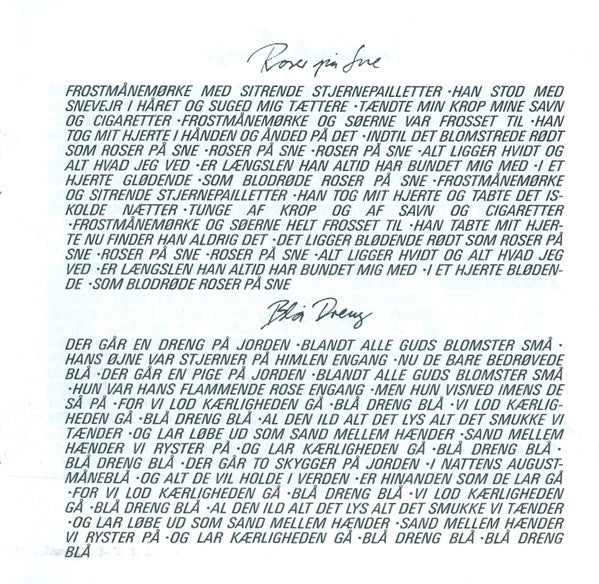 Roser på Sne
FROSTMÅNEMØRKE MED SITRENDE STJERNEPAILLETTER · HAN STOD MED
SNEVEJR I HÅRET OG SUGED MIG TÆTTERE · TÆNDTE MIN KROP MINE SAVN
OG CIGARETTER · FROSTMÅNEMØRKE OG SØERNE VAR FROSSET TIL · HAN
TOG MIT HJERTE I HÅNDEN OG ÅNDED PÅ DET · INDTIL DET BLOMSTREDE RØDT
SOM ROSER PÅ SNE · ROSER PÅ SNE · ROSER PÅ SNE · ALT LIGGER HVIDT OG
ALT HVAD JEG VED · ER LÆNGSLEN HAN ALTID HAR BUNDET MIG MED · I ET
HJERTE GLØDENDE · SOM BLODRØDE ROSER PÅ SNE · FROSTMÅNEMØRKE
OG SITRENDE STJERNEPAILLETTER · HAN TOG MIT HJERTE OG TABTE DET IS-
KOLDE NÆTTER · TUNGE AF KROP OG AF SAVN OG CIGARETTER
· FROSTMÅNEMØRKE OG SØERNE HELT FROSSET TIL · HAN TABTE MIT HJER-
TE NU FINDER HAN ALDRIG DET · DET LIGGER BLØDENDE RØDT SOM ROSER PÅ
SNE · ROSER PÅ SNE · ROSER PÅ SNE · ALT LIGGER HVIDT OG ALT HVAD JEG
VED · ER LÆNGSLEN HAN ALTID HAR BUNDET MIG MED · I ET HJERTE BLØDEN-
DE · SOM BLODRØDE ROSER PÅ SNE
Blå Dreng
DER GÅR EN DRENG PÅ JORDEN · BLANDT ALLE GUDS BLOMSTER SMÅ ·
HANS ØJNE VAR STJERNER PÅ HIMLEN ENGANG · NU DE BARE BEDRØVEDE
BLÅ · DER GÅR EN PIGE PÅ JORDEN · BLANDT ALLE GUDS BLOMSTER SMÅ
· HUN VAR HANS FLAMMENDE ROSE ENGANG · MEN HUN VISNED IMENS DE
SÅ PÅ · FOR VI LOD KÆRLIGHEDEN GÅ · BLÅ DRENG BLÅ · VI LOD KÆRLIG-
HEDEN GÅ · BLÅ DRENG BLÅ · AL DEN ILD ALT DET LYS ALT DET SMUKKE VI
TÆNDER · OG LAR LØBE UD SOM SAND MELLEM HÆNDER · SAND MELLEM
HÆNDER VI RYSTER PÅ · OG LAR KÆRLIGHEDEN GÅ · BLÅ DRENG BLÅ ·
BLÅ DRENG BLÅ · DER GÅR TO SKYGGER PÅ JORDEN · I NATTENS AUGUST-
MÅNEBLÅ · OG ALT DE VIL HOLDE I VERDEN · ER HINANDEN SOM DE LAR GÅ
· FOR VI LOD KÆRLIGHEDEN GÅ · BLÅ DRENG BLÅ · VI LOD KÆRLIGHEDEN
GÅ · BLÅ DRENG BLÅ · AL DEN ILD ALT DET LYS ALT DET SMUKKE VI TÆNDER
· OG LAR LØBE UD SOM SAND MELLEM HÆNDER · SAND MELLEM HÆNDER
VI RYSTER PÅ · OG LAR KÆRLIGHEDEN GÅ · BLÅ DRENG BLÅ · BLÅ DRENG
BLÅ